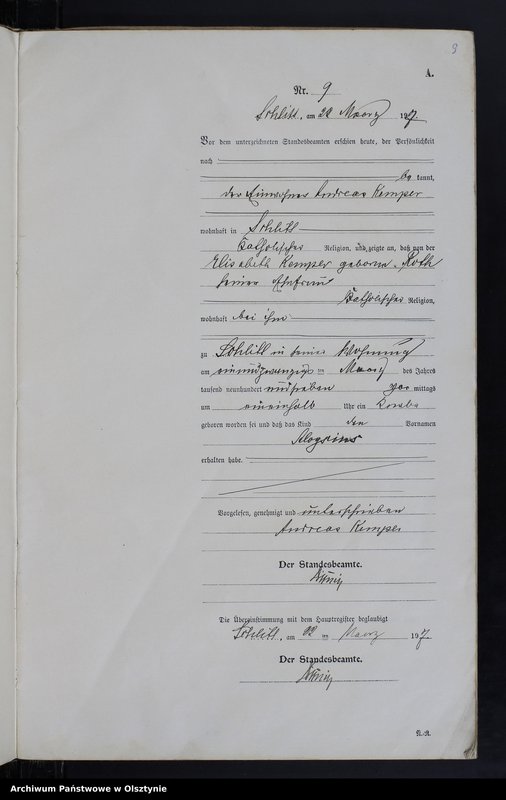 9
A.
Nr. 9
Schlitt, am 22 März 1907.
Vor dem unterzeichneten Standesbeamten erschien heute, der Persönlichkeit
nach
be kannt,
der Einwohner Andreas Kemper
wohnhaft in Schlitt
katholischer Religion, und zeigte an, daß von der
Elisabeth Kemper geborne Roth
seiner Ehefrau
katholischer Religion,
wohnhaft bei ihm
zu Schlitt in seiner Wohnung
am einundzwanzigsten März des Jahres
tausend neunhundert und sieben vor mittags
um Uhr ein Knabe
geboren worden sei und daß das Kind den Vornamen
Aloysius
erhalten habe.
Vorgelesen, genehmigt und unterschrieben
Andreas Kemper
Der Standesbeamte.
Die Übereinstimmung mit dem Hauptregister beglaubigt
Schlitt, am 22 ten März 1907.
Der Standesbeamte.
Archiwum Państwowe w Olsztynie